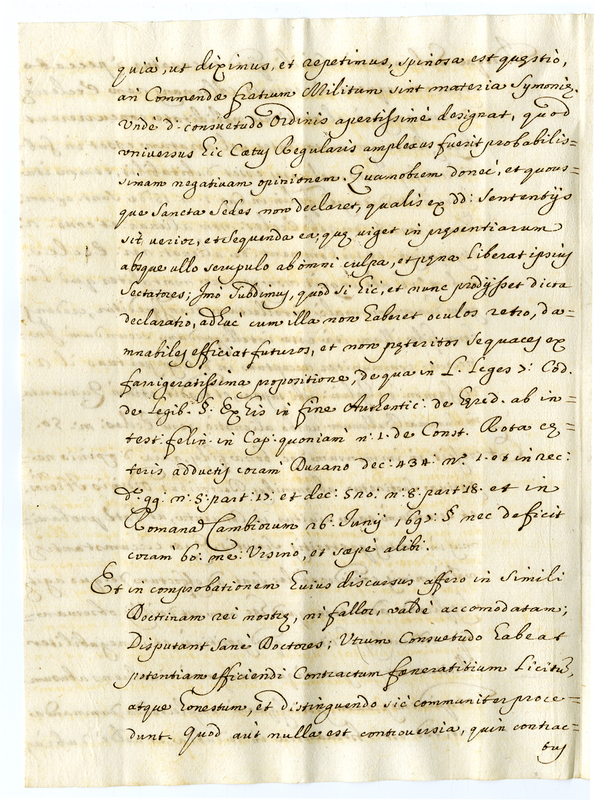 quia, ut diximus, et repetimus, spinosa est quęstio,
an Commendæ fratrum Militum sint materia Symonię.
Unde d.ᵃ consuetudo Ordinis apertissimè designat, quod
universus hic Cætus Regularis amplexus fuerit probabilis=
simam negativam opinionem. Quamobrem donec, et quous=
que Sancta Sedes non declaret, qualis ex dd: Sententijs
sit verior, et sequenda ea, quę viget in pręsentiarum
absque ullo scrupulo ab omni culpa, et pęna liberat ipsius
Sectatores; Imo Subdimus, quod si hic, et nunc prodijsset dicta
declaratio, adhuc cum illa non haberet oculos retro, da=
mnabiles efficiat futuros, et non pręteritos sequaces ex
farrigeratissima propositione, de qua in L. Leges 7: Cod.
de legib. §. Ex his in fine Authentic. de hęred. ab in=
test. felin. in Cap. quoniam n.º 1. de Const. Rota cę=
teris adductis coram Durano dec. 434. nº. 1. et in rec:
dº. 99. nº. 5. part. 17. et dec. 520. nº. 8. part. 18. et in
Romana Cambiorum 26. Junij 1697. §. nec deficit
coram bo: me: Ursino, et sæpè alibi.
Et in comprobationem huius discursus affero in simili
Doctrinam rei nostrę, ni fallor, valdè accomodatam;
Disputant sanè Doctores; Utrum Consuetudo habeat
potentiam efficiendi Contractum fæneratitium Licitũ,
atque honestum, et distinguendo sic communiter proce=
dunt. Quod aut nulla est controversia, quin contrac=
tus